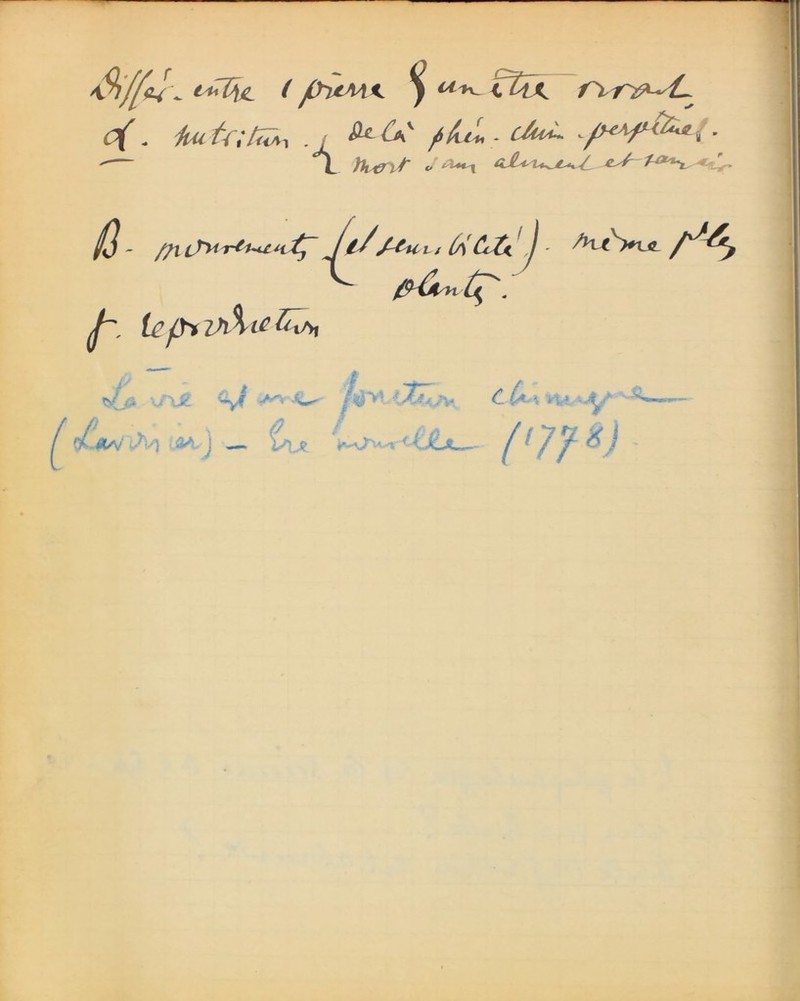 Différ. entre 1 pierre & un être vivant
α. nutrition. { De là phén. chim. perpétuel.
mort sans aliment et sans air
β - mouvements (et sensibilité). même p^r les
plantes.
γ. reproduction
La vie est une fonction chimique
(Lavoisier) — Ère nouvelle (1778)